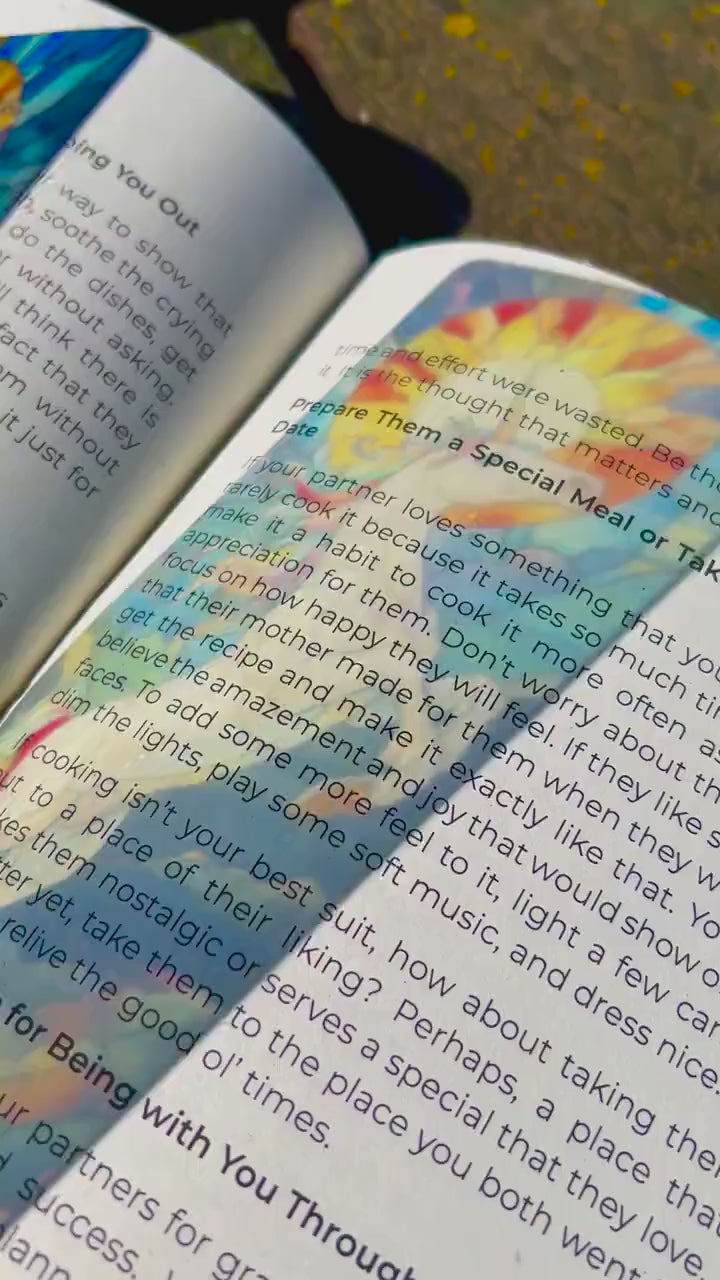 ing You Out
way to show that
soothe the crying
do the dishes, get
without asking.
think there is
fact that they
without
it just for
time and effort were wasted. Be
it is the thought that matters and
Prepare Them a Special Meal or
Date
If your partner loves something that you
rarely cook it because it takes so much
make it a habit to cook it more often as
appreciation for them. Don't worry about
focus on how happy they will feel. If they like
that their mother made for them when they
get the recipe and make it exactly like that.
believe the amazement and joy that would show
faces. To add some more feel to it, light a few
dim the lights, play some soft music, and dress nice.
If cooking isn't your best suit, how about taking
to a place of their liking? Perhaps, a place
them nostalgic or serves a special that they love
yet, take them to the place you both went
relive the good ol' times.
for Being with You Through
partners for
success.